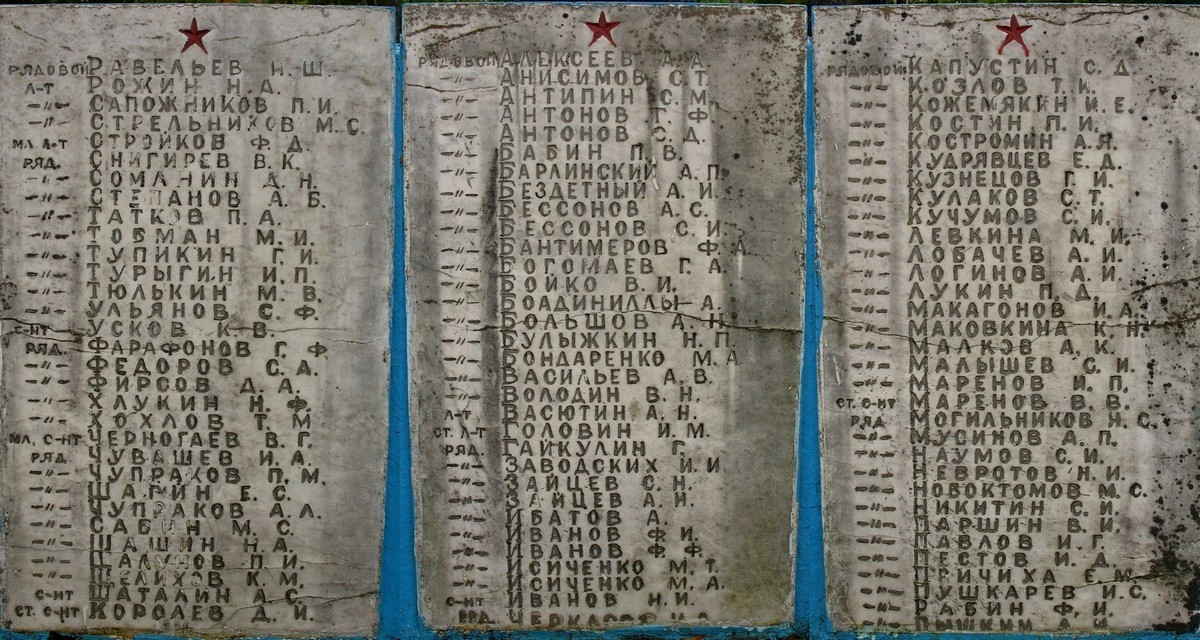 РЯДОВОЙ РАВЕЛЬЕВ Н. Ш.
Л-Т РОЖИН Н. А.
-"- САПОЖНИКОВ П. И.
-"- СТРЕЛЬНИКОВ М. С.
МЛ. Л-Т СТРОЙКОВ Ф. Д.
РЯД. СНИГИРЕВ В. К.
-"- СОМАНИН Д. Н.
-"- СТЕПАНОВ А. Б.
-"- ТАТКОВ П. А.
-"- ТОБМАН М. И.
-"- ТУПИКИН Г. И.
-"- ТУРЫГИН И. П.
-"- ТЮЛЬКИН М. В.
-"- УЛЬЯНОВ С. Ф.
С-НТ УСКОВ К. В.
РЯД. ФАРАФОНОВ Г. Ф.
-"- ФЕДОРОВ С. А.
-"- ФИРСОВ Д. А.
-"- ХЛУКИН Н. Ф.
-"- ХОХЛОВ Т. М
МЛ. С-НТ ЧЕРНОГАЕВ В. Г.
РЯД. ЧУВАШЕВ И. А.
-"- ЧУПРАКОВ П. М.
-"- ШАГИН Е. С.
-"- ЧУПРАКОВ А. Л.
-"- САБИН М. С.
-"- ШАШИН Н. А.
-"- П. И.
-"- ШЕЛИХОВ К. М.
С-НТ ШАТАЛИН А. С.
СТ. С-НТ КОРОЛЕВ Д. И.
РЯДОВОЙ АЛЕКСЕЕВ А. А.
-"- АНИСИМОВ С. Т
-"- АНТИПИН С. М.
-"- АНТОНОВ Г. Ф.
-"- АНТОНОВ С. Д.
-"- БАБИН П. В.
-"- БАРЛИНСКИЙ А. П.
-"- БЕЗДЕТНЫЙ А. И.
-"- БЕССОНОВ А. С.
-"- БЕССОНОВ С. И.
-"- БАНТИМЕРОВ Ф. А.
-"- БОГОМАЕВ Г. А.
-"- БОЙКО В. И.
-"- БОАДИНИЛЛЫ А.
-"- БОЛЬШОВ А. Н.
-"- БУЛЫЖКИН Н. П.
-"- БОНДАРЕНКО М. А
-"- ВАСИЛЬЕВ А. В.
-"- ВОЛОДИН В. Н.
Л-Т ВАСЮТИН А. Н.
СТ. Л-Т ГОЛОВИН И. М.
РЯД. ГАЙКУЛИН Г.
-"- ЗАВОДСКИХ И. И
-"- ЗАЙЦЕВ С. Н.
-"- ЗАЙЦЕВ А. Н.
-"- ИБАТОВ А.
-"- ИВАНОВ Ф. И.
-"- ИВАНОВ Ф. Ф.
-"- ИСИЧЕНКО М. Т.
-"- ИСИЧЕНКО М. А.
С-НТ ИВАНОВ Н. И.
РЯД.
РЯДОВОЙ КАПУСТИН С. Д
-"- КОЗЛОВ Т. И.
-"- КОЖЕМЯКИН И. Е.
-"- КОСТИН П. И.
-"- КОСТРОМИН А. Я.
-"- КУДРЯВЦЕВ Е. Д.
-"- КУЗНЕЦОВ Г. И.
-"- КУЛАКОВ С. Т.
-"- КУЧУМОВ С. И.
-"- ЛЕВКИНА М. И.
-"- ЛОБАЧЕВ А. И.
-"- ЛОГИНОВ А. И.
-"- ЛУКИН П. Д.
-"- МАКАГОНОВ И. А.
-"- МАКОВКИНА К. Н.
-"- МАЛКОВ А. К.
-"- МАЛЫШЕВ С. И.
-"- МАРЕНОВ И. П.
СТ. С-НТ МАРЕНОВ В. В.
РЯД. МОГИЛЬНИКОВ Я. С.
-"- МУСИНОВ А. П.
-"- НАУМОВ С. И.
-"- НЕВРОТОВ Н. И.
-"- НОВОКТОМОВ М. С.
-"- НИКИТИН С. И.
-"- ПАРШИН В. И.
-"- ПАВЛОВ И. Г.
-"- ПЕСТОВ И. Д.
-"- ПРИЧИХА Е. М.
-"- ПУШКАРЕВ И. С.
-"- РАБИН Ф. И.
-"- ПЫШКИН А. И